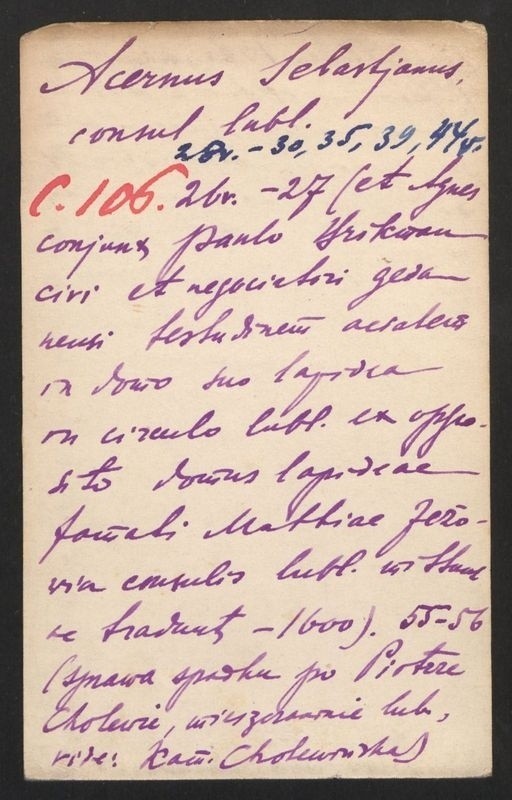 Acernus Sebastjanus,
consul lubl.
28v. – 30, 35, 39, 44v.
C. 106. 26v. – 27 (et Agnes
conjunx Paulo
civi et negociatori geda-
nensi testudinem
in domo sua lapidea
in circulo lubl. ex oppo-
sito domus lapideae
famati Matthiae Jeżo-
wia consulis lubl.
ac tradunt – 1600). 55–56
(sprawa spadku po Piotrze
Cholewie, mieszczaninie lub.,
vide: Kat. Cholewińska)